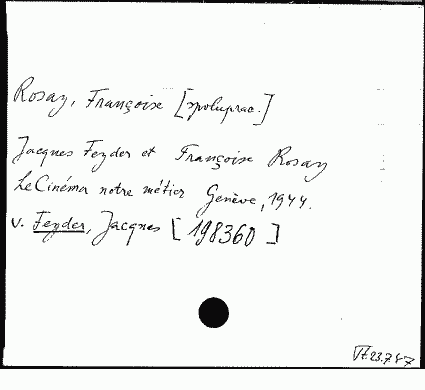 Rosay, Françoise [spoluprac.]
Jacques Feyder et Françoise Rosay
Le Cinéma notre métier Genève, 1944.
v. Feyder, Jacques [198360]